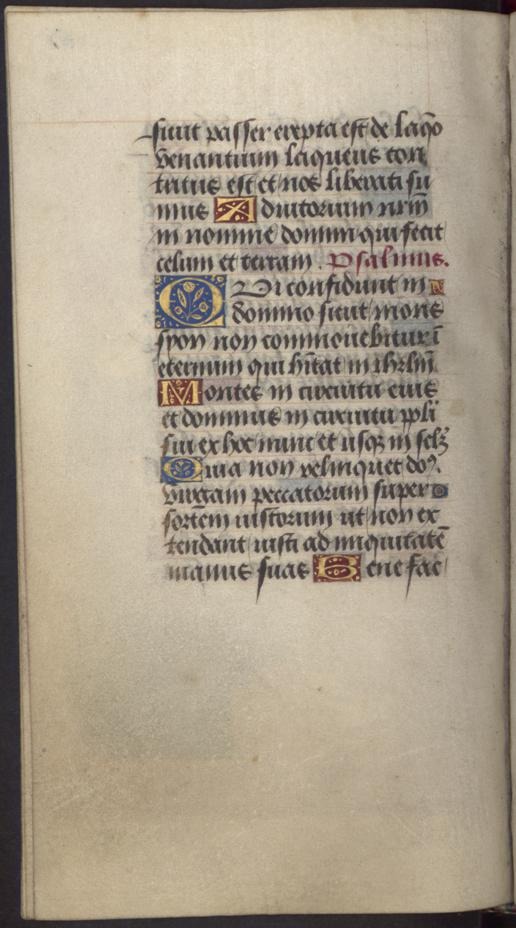 sicut passer erepta est de laq̄o
venantium laqueus con
tritus est et nos liberati su
mus Adiutorium nr̄m
in nomine domini qui fecit
celum et terram. Psalmus.
Qui confidunt in
domino sicut mons
syon non commouebitur ī
eternum qui hītat in ihrlm̄
Montes in circuitu eius
et dominus in circuitu ppl̄i
sui ex hoc nunc et usqꝫ in sclꝫ
Quia non relinquet do9.
virgam peccatorum super
sortem iustorum ut non ex
tendant iusti ad iniquitatē
manus suas Bene fac